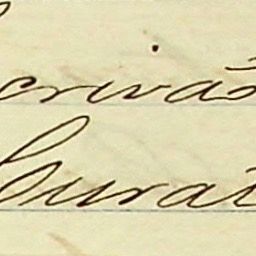 crivão
Curat